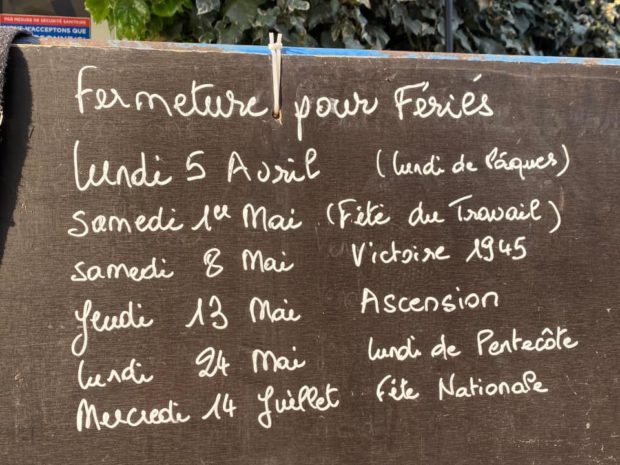 PAR MESURE DE SÉCURITÉ SANITAIRE
N'ACCEPTONS QUE
Fermeture pour Fériés
lundi 5 Avril (lundi de Pâques)
samedi 1er Mai (Fête du Travail)
samedi 8 Mai Victoire 1945
Jeudi 13 Mai Ascension
lundi 24 Mai lundi de Pentecôte
Mercredi 14 Juillet Fête Nationale